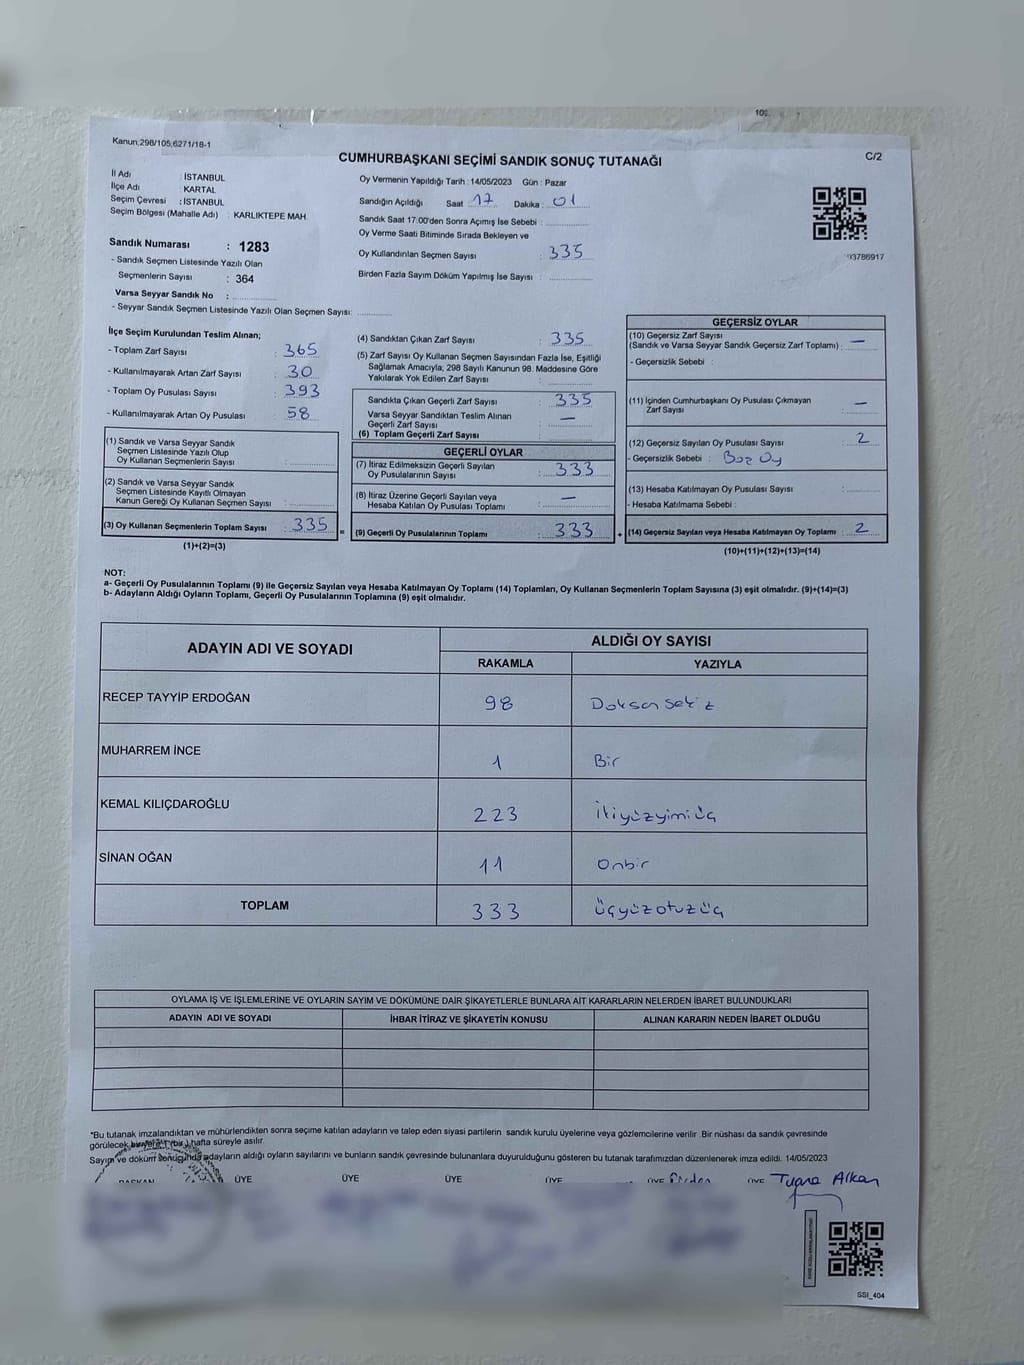 Kanun;298/105;6271/18-1
CUMHURBAŞKANI SEÇİMİ SANDIK SONUÇ TUTANAĞI
C/2
İl Adı : İSTANBUL
İlçe Adı : KARTAL
Seçim Çevresi : İSTANBUL
Seçim Bölgesi (Mahalle Adı) : KARLIKTEPE MAH.
Sandık Numarası : 1283
- Sandık Seçmen Listesinde Yazılı Olan
Seçmenlerin Sayısı : 364
Varsa Seyyar Sandık No :
- Seyyar Sandık Seçmen Listesinde Yazılı Olan Seçmen Sayısı:
Oy Vermenin Yapıldığı Tarih : 14/05/2023 Gün : Pazar
Sandığın Açıldığı Saat 17 Dakika : 01
Sandık Saat 17:00'den Sonra Açımış İse Sebebi :
Oy Verme Saati Bitiminde Sırada Bekleyen ve
Oy Kullandırılan Seçmen Sayısı : 335
Birden Fazla Sayım Döküm Yapılmış İse Sayısı :
93786917
İlçe Seçim Kurulundan Teslim Alınan;
- Toplam Zarf Sayısı : 365
- Kullanılmayarak Artan Zarf Sayısı : 30
- Toplam Oy Pusulası Sayısı : 393
- Kullanılmayarak Artan Oy Pusulası : 58
(1) Sandık ve Varsa Seyyar Sandık
Seçmen Listesinde Yazılı Olup
Oy Kullanan Seçmenlerin Sayısı :
(2) Sandık ve Varsa Seyyar Sandık
Seçmen Listesinde Kayıtlı Olmayan
Kanun Gereği Oy Kullanan Seçmen Sayısı :
(3) Oy Kullanan Seçmenlerin Toplam Sayısı : 335
(1)+(2)=(3)
(4) Sandıktan Çıkan Zarf Sayısı : 335
(5) Zarf Sayısı Oy Kullanan Seçmen Sayısından Fazla İse, Eşitliği
Sağlamak Amacıyla; 298 Sayılı Kanunun 98. Maddesine Göre
Yakılarak Yok Edilen Zarf Sayısı :
Sandıkta Çıkan Geçerli Zarf Sayısı : 335
Varsa Seyyar Sandıktan Teslim Alınan
Geçerli Zarf Sayısı : —
(6) Toplam Geçerli Zarf Sayısı :
GEÇERLİ OYLAR
(7) İtiraz Edilmeksizin Geçerli Sayılan
Oy Pusulalarının Sayısı : 333
(8) İtiraz Üzerine Geçerli Sayılan veya
Hesaba Katılan Oy Pusulası Toplamı : —
= (9) Geçerli Oy Pusulalarının Toplamı : 333
GEÇERSİZ OYLAR
(10) Geçersiz Zarf Sayısı
(Sandık ve Varsa Seyyar Sandık Geçersiz Zarf Toplamı) : —
- Geçersizlik Sebebi :
(11) İçinden Cumhurbaşkanı Oy Pusulası Çıkmayan
Zarf Sayısı : —
(12) Geçersiz Sayılan Oy Pusulası Sayısı : 2
- Geçersizlik Sebebi : Boz Oy
(13) Hesaba Katılmayan Oy Pusulası Sayısı :
- Hesaba Katılmama Sebebi :
+ (14) Geçersiz Sayılan veya Hesaba Katılmayan Oy Toplamı : 2
(10)+(11)+(12)+(13)=(14)
NOT:
a- Geçerli Oy Pusulalarının Toplamı (9) ile Geçersiz Sayılan veya Hesaba Katılmayan Oy Toplamı (14) Toplamları, Oy Kullanan Seçmenlerin Toplam Sayısına (3) eşit olmalıdır. (9)+(14)=(3)
b- Adayların Aldığı Oyların Toplamı, Geçerli Oy Pusulalarının Toplamına (9) eşit olmalıdır.
ADAYIN ADI VE SOYADI
ALDIĞI OY SAYISI
RAKAMLA YAZIYLA
RECEP TAYYİP ERDOĞAN 98 Doksan sekiz
MUHARREM İNCE 1 Bir
KEMAL KILIÇDAROĞLU 223 İkiyüzyimiüç
SİNAN OĞAN 11 onbir
TOPLAM 333 üçyüzotuzüç
OYLAMA İŞ VE İŞLEMLERİNE VE OYLARIN SAYIM VE DÖKÜMÜNE DAİR ŞİKAYETLERLE BUNLARA AİT KARARLARIN NELERDEN İBARET BULUNDUKLARI
ADAYIN ADI VE SOYADI İHBAR İTİRAZ VE ŞİKAYETİN KONUSU ALINAN KARARIN NEDEN İBARET OLDUĞU
*Bu tutanak imzalandıktan ve mühürlendikten sonra seçime katılan adayların ve talep eden siyasi partilerin sandık kurulu üyelerine veya gözlemcilerine verilir. Bir nüshası da sandık çevresinde
görülecek bir yere (bir) hafta süreyle asılır.
Sayım ve döküm sonucunda adayların aldığı oyların sayılarını ve bunların sandık çevresinde bulunanlara duyurulduğunu gösteren bu tutanak tarafımızdan düzenlenerek imza edildi. 14/05/2023
BAŞKAN ÜYE ÜYE ÜYE ÜYE ÜYE ÜYE Tuana Alkan
SSI_404